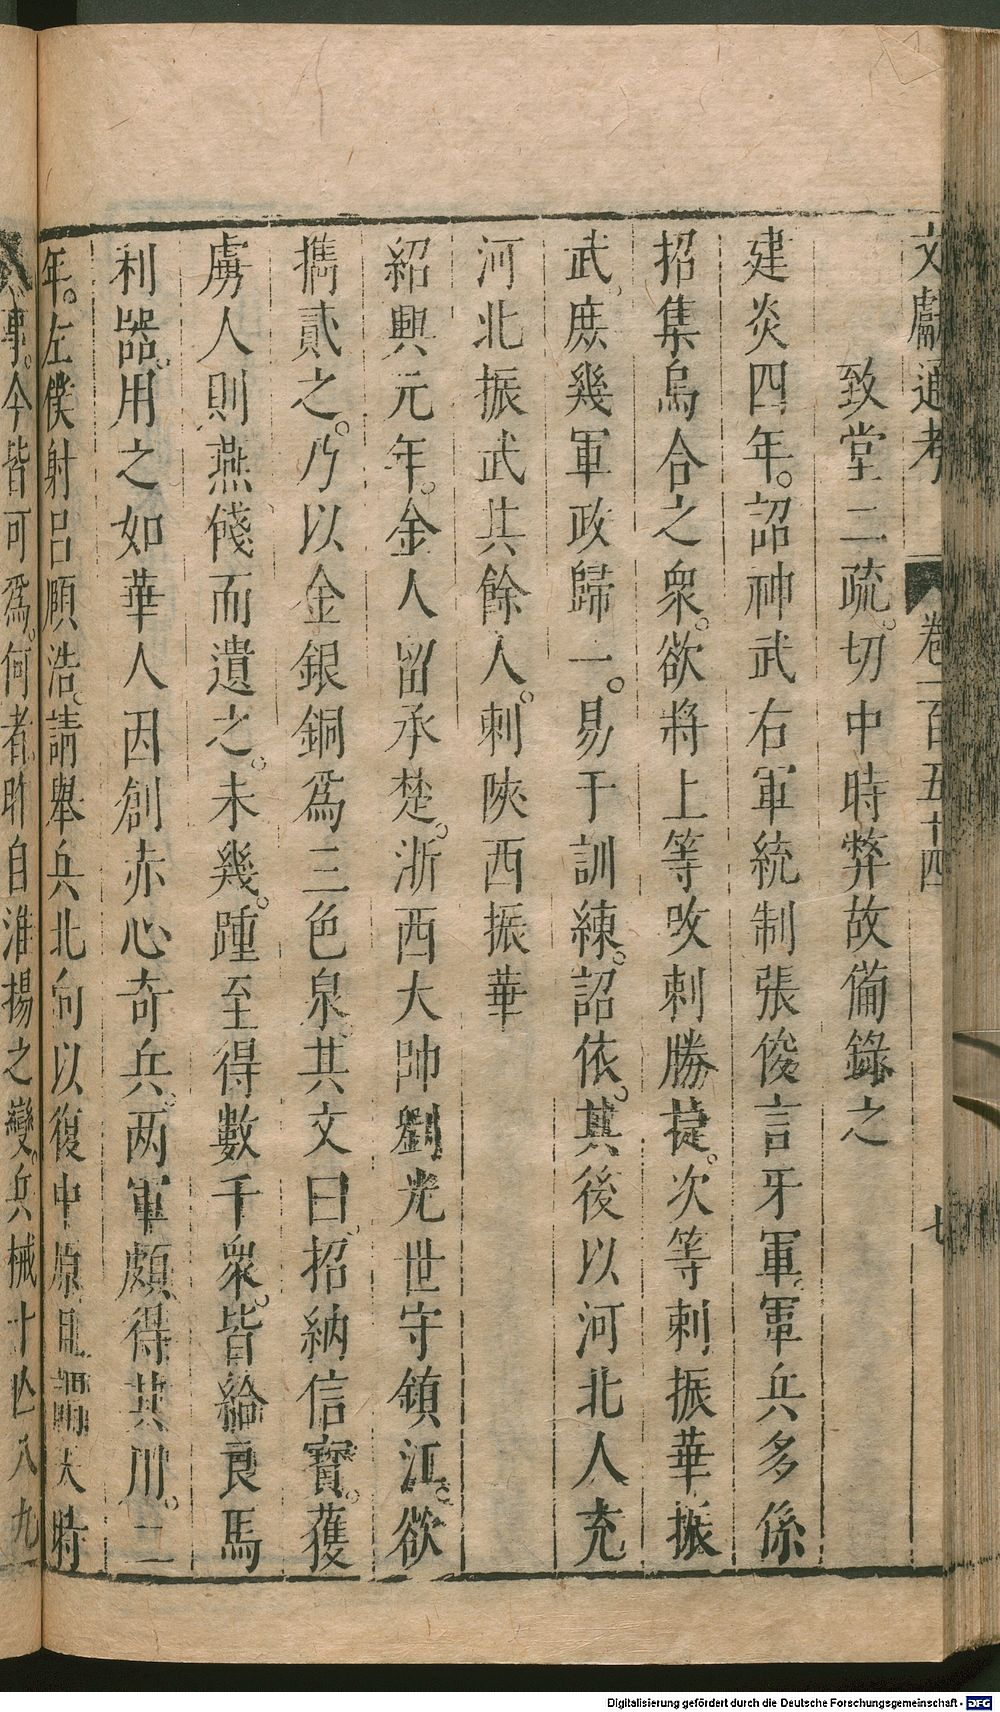 文獻通考 卷一百五十四 七
致堂二疏。切中時弊故備錄之
建炎四年。詔神武右軍統制張俊言牙軍。軍兵多係
招集烏合之衆。欲將上等攺刺勝㨗。次等刺振華振
武。庶幾軍政歸一。易于訓練。詔依。其後以河北人充
河北振武共餘人。刺陝西振華
紹興元年。金人留承楚。浙西大帥劉光世守鎮江。欲
攜貳之。乃以金銀銅爲三色泉。其文曰。招納信寶。獲
虜人則燕餞而遺之。未幾。踵至得數千衆。皆給良馬
利器。用之如華人因創赤心奇兵。两軍頗得其用。二
年。左僕射呂頤浩。請舉兵北向以復中原且謂天時
人事。今皆可爲。何者昨自淮揚之變。兵械十亾八九
Digitalisierung gefördert durch die Deutsche Forschungsgemeinschaft - DFG